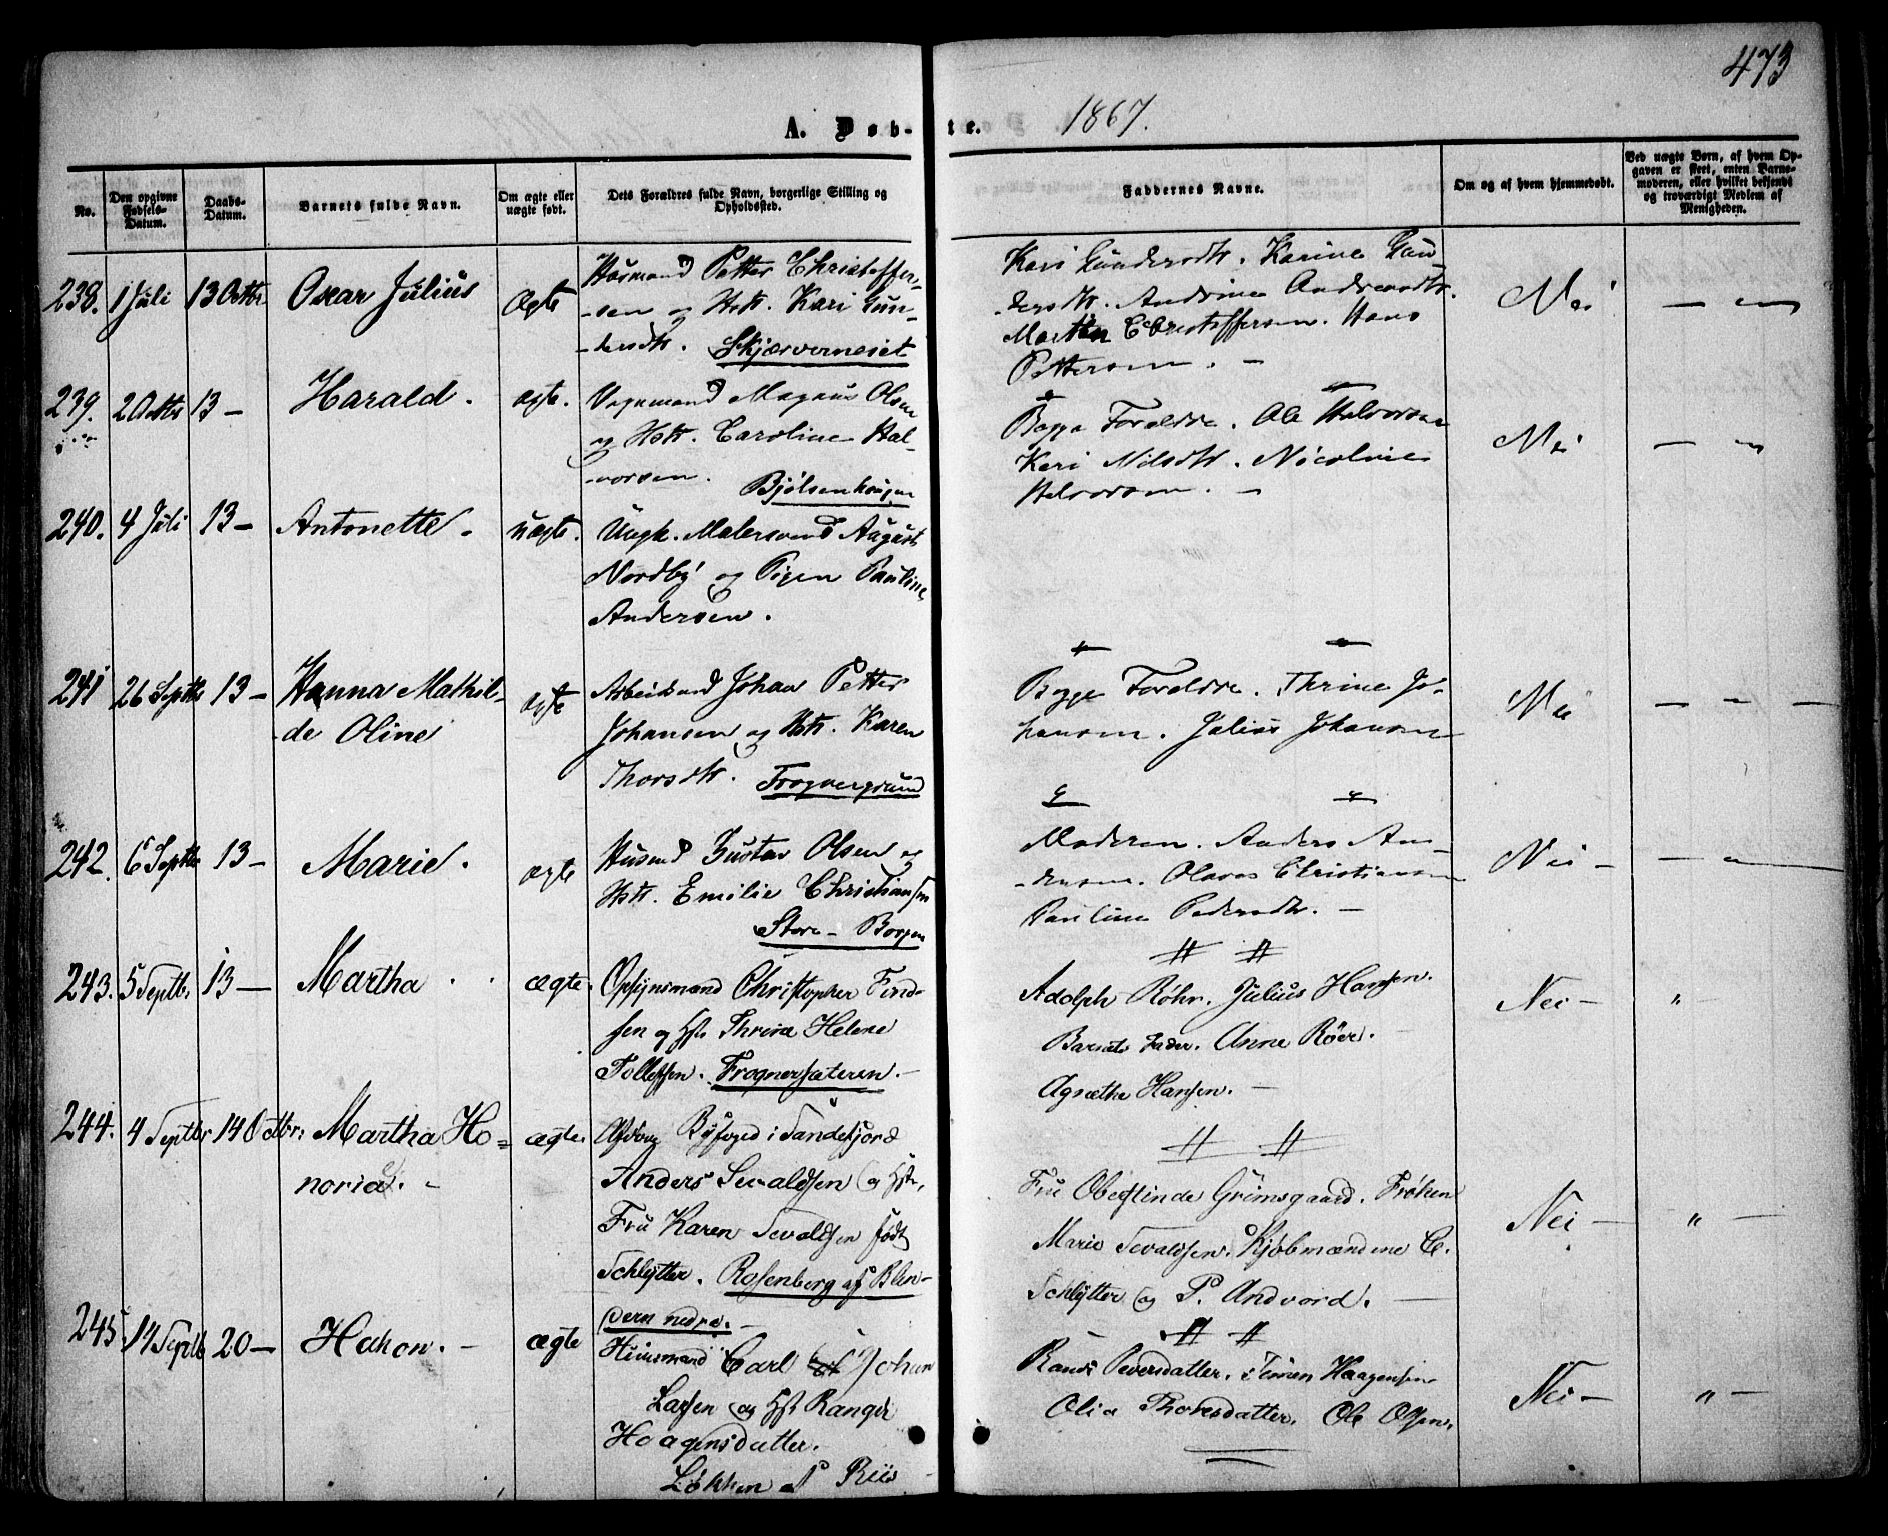 473
A. Døb-te. 1867.
No.
Den opgivne Fødsels-Datum.
Daabs-Datum.
Barnets fulde Navn.
Om ægte eller uægte født.
Dets Forældres fulde Navn, borgerlige Stilling og Opholdssted.
Faddernes Navne.
Om og af hvem hjemmedøbt.
Ved uægte Børn, af hvem Opgaven er skeet, enten Barnemoderen, eller hvilket bekjendt og troværdigt Medlem af Menigheden.
238. 1 Juli 13 Octbr Oscar Julius Ægte
Husmand Petter Christoffer-
-sen og Hstr. Kari Gun-
-dersdtr. Skjærverneiet
Kari Gundersdtr. Karine Gun
-dersdtr. Andrine Andreasdtr.
Martin Christoffersen. Hans
Pettersen. —
Nei — —
239. 2 Octbr 13 — Harald. ægte.
Vognmand Magnus Olsen
og Hstr. Caroline Hal-
-vorsen.
Bjølsenhougen
Begge Foreldre. Ole Halvorsen
Kari Nilsdtr. Nicoline
Halvorsen. —
Nei — —
240. 4 Juli 13 — Antonette. uægte.
Ungk. Malersvend August
Nordby og Pigen Pauline
Andersen.
241 26 Septbr 13 — Hanna Mathil-
-de Oline ægte
Arbeidsmd Johan Petter
Johansen og Hstr. Karen
Thorsdtr. Frognergrund
Begge Foreldre. Thrine Jo-
hansen. Julius Johansen
Nei — — —
242. 6 Septbr 13 — Marie. ægte
Husmd Gustav Olsen og
Hstr. Emilie Christiansen
Store - Borgen
Moderen. Anders An-
-dersen. Olaves Christiansen
Pauline Pedersdtr. —
Nei — — —
243. 5 Septbr. 13 — Martha. ægte.
Opsynsmand Christopher Find-
sen og Hst. Thrina Helene
Tollefsen. Frognersæteren. —
Adolph Röhr. Julius Hansen.
Barnets Fader. Anne Röer.
Agnethe Hansen. —
Nei — " —
244. 4 Septbr 14 Octbr: Martha Ho-
noria. — ægte.
Byfoged i Sandefjord
Anders Sevaldsen og Hst.
Fru Karen Sevaldsen født
Schlytter. Rosenberg af Blen-
vern nedre. —
Fru Grimsgaard. Frøken
Marie Sevaldsen. Kjøbmændene C.
Schlytter og P. Andvord. —
Nei — " —
245 14 Septb 20 — Hakon. — ægte
Huusmand Carl Johan
Larsen og Hst Rangdi
Haagensdatter.
Løkken af Riis
Randi Pedersdatter. Simen Haagensen
Olia Thoresdatter. Ole Olsen.
Nei — " —